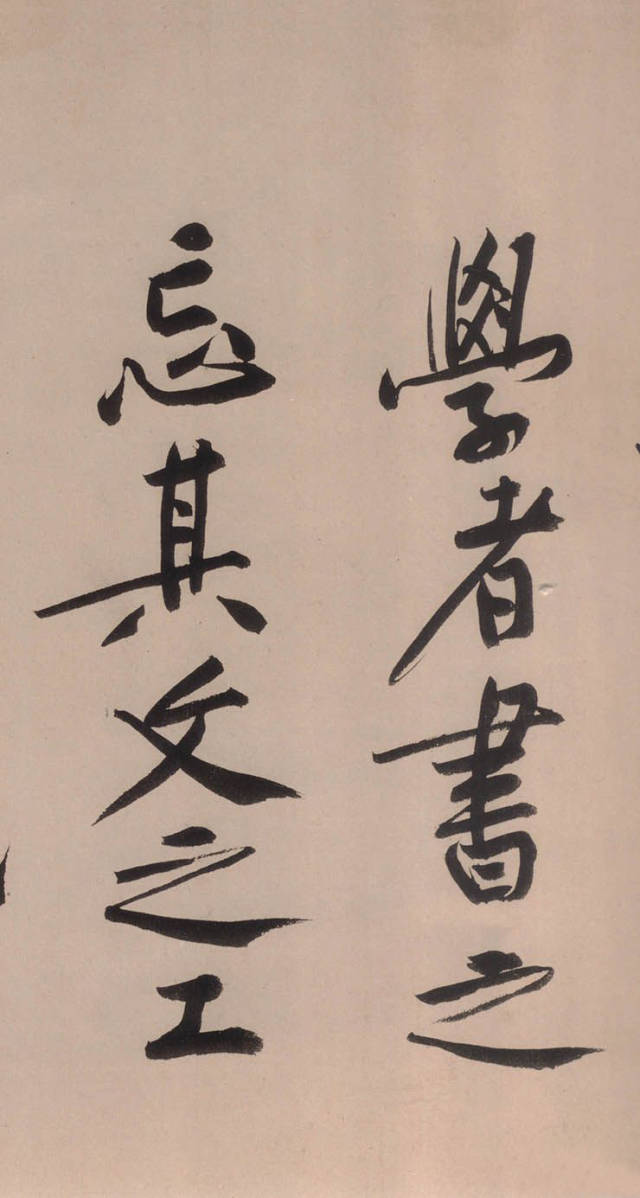 學者書之
忘其文之工